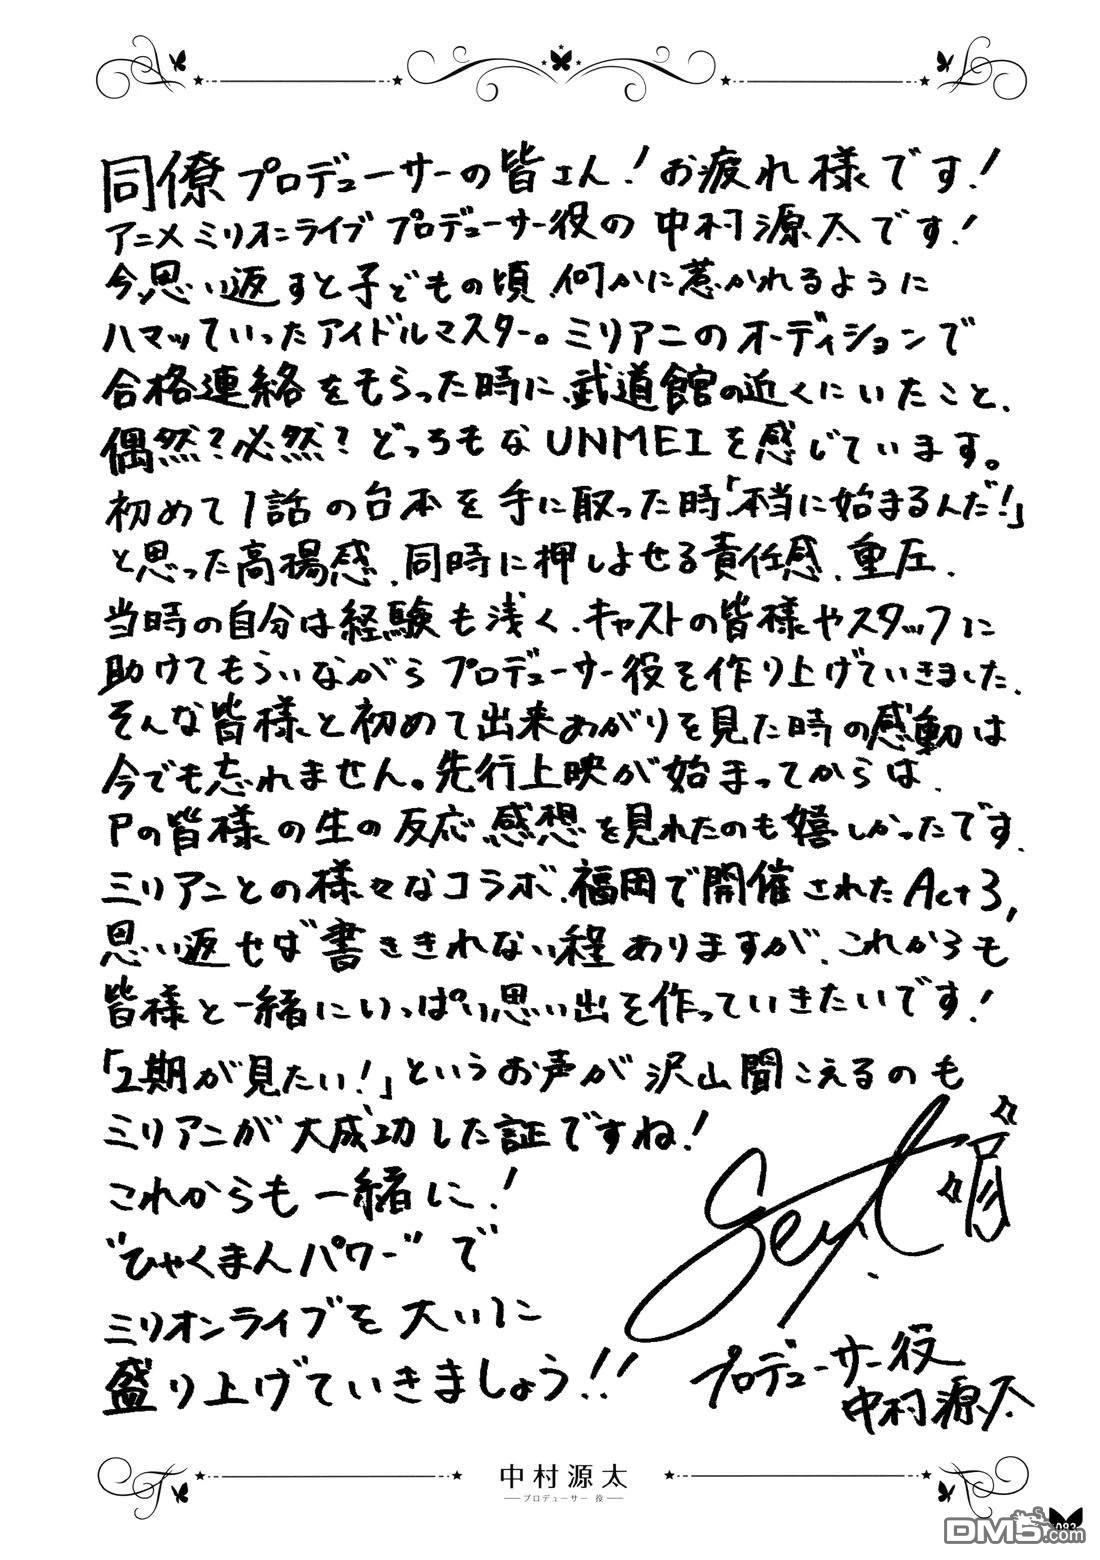 同僚プロデューサーの皆さん!お疲れ様です!
アニメミリオンライブ プロデューサー役の 中村源太です!
今思い返すと子どもの頃、何かに惹かれるように
ハマッていったアイドルマスター。ミリアニのオーディションで
合格連絡をもらった時に、武道館の近くにいたこと、
偶然?必然?どっちもなUNMEIを感じています。
初めて1話の台本を手に取った時「本当に始まるんだ!」
と思った高揚感、同時に押しよせる責任感、重圧、
当時の自分は経験も浅く、キャストの皆様やスタッフに
助けてもらいながらプロデューサー役を作り上げていきました、
そんな皆様と初めて出来あがりを見た時の感動は
今でも忘れません。先行上映が始まってからは、
Pの皆様の生の反応、感想を見れたのも嬉しかったです、
ミリアニとの様々なコラボ、福岡で開催されたAct3,
思い返せば書ききれない程ありますが、これからも
皆様と一緒にいっぱい思い出を作っていきたいです!
「2期が見たい!」というお声が沢山聞こえるのも
ミリアニが大成功した証ですね!
これからも一緒に!
"ひゃくまんパワー"で
ミリオンライブを大いに
盛り上げていきましょう!!
プロデューサー役
中村源太
中村源太
プロデューサー 役
093
DM5.com